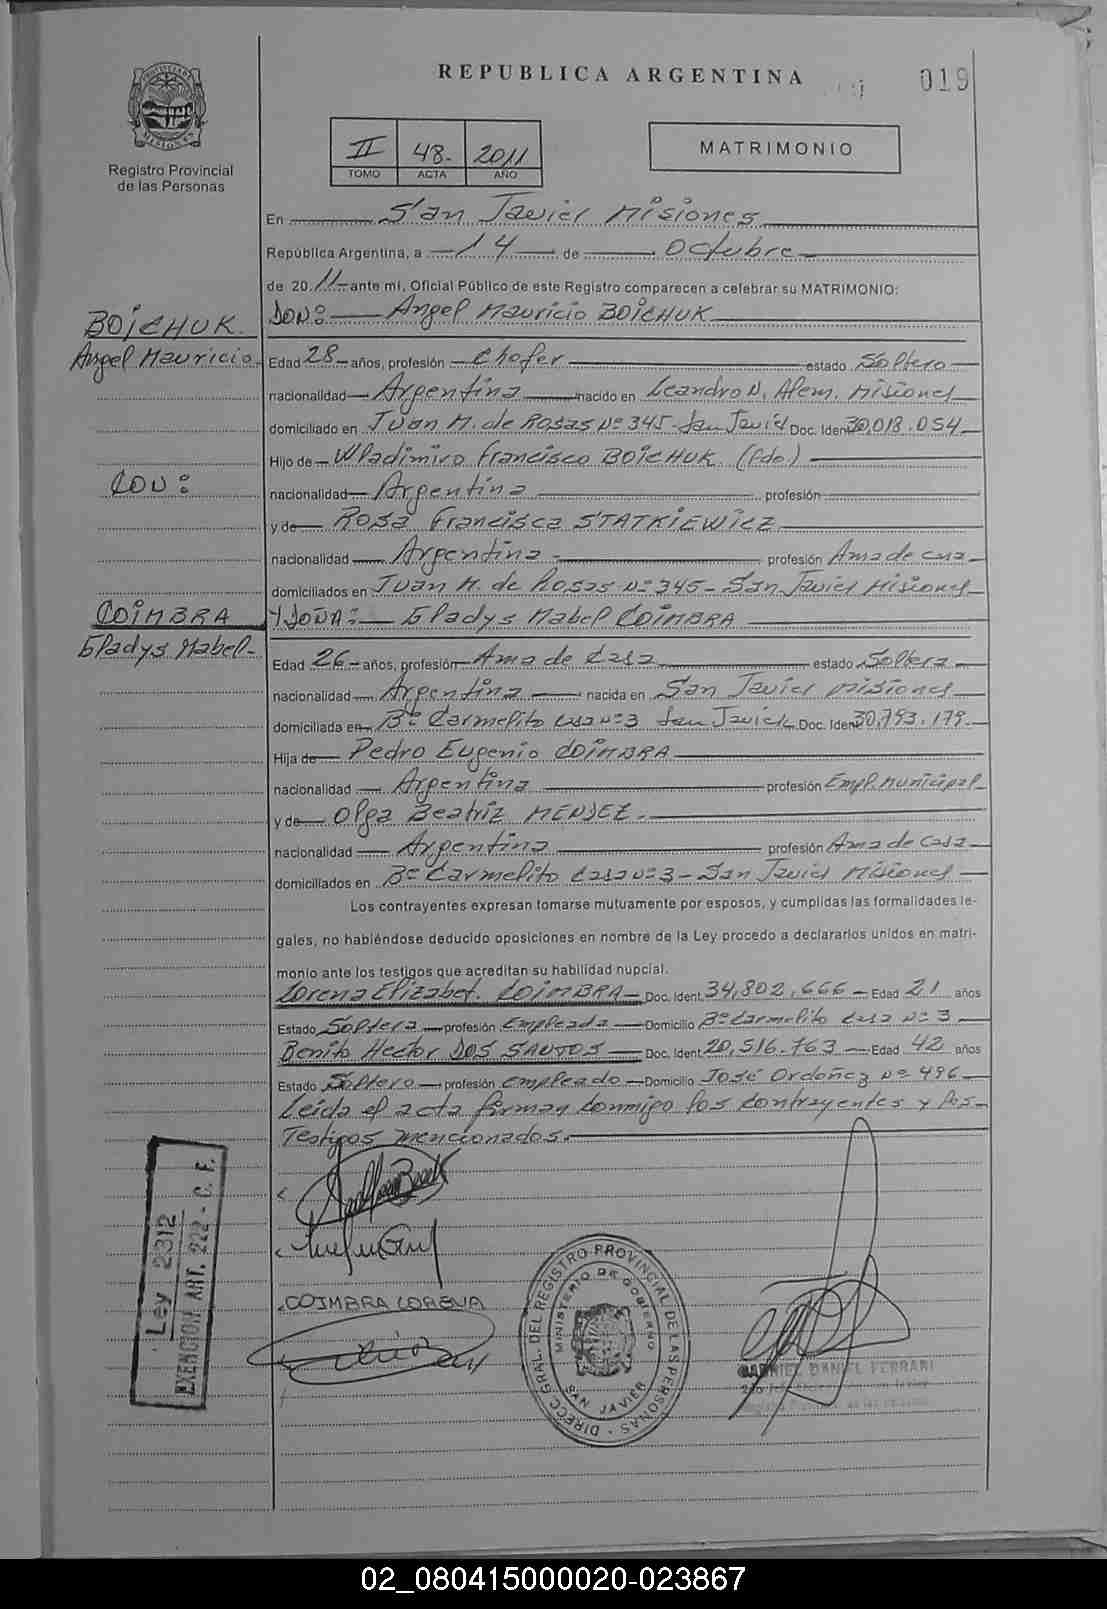 REPUBLICA ARGENTINA
019
PROVINCIA DE MISIONES
Registro Provincial
de las Personas
II 48.- 2011
TOMO ACTA AÑO
MATRIMONIO
En San Javier Misiones
República Argentina, a 14 de Octubre
de 2011 ante mi, Oficial Público de este Registro comparecen a celebrar su MATRIMONIO:
BOICHUK.
DON: Angel Mauricio BOICHUK
Angel Mauricio
Edad 28 años, profesión Chofer estado Soltero
nacionalidad Argentina nacido en Leandro N. Alem. Misiones
domiciliado en Juan M. de Rosas Nº 345- San Javier Doc. Ident 30,018.054
Hijo de Wladimiro Francisco BOICHUK (fdo.)
CON:
nacionalidad Argentina profesión
y de Rosa Francisca STATKIEWICZ
nacionalidad Argentina profesión Ama de casa
domiciliados en Juan M. de Rosas Nº 345- San Javier Misiones
COIMBRA
Y DOÑA: Gladys Mabel COIMBRA
Gladys Mabel
Edad 26 años, profesión Ama de Casa estado Soltera
nacionalidad Argentina nacida en San Javier Misiones
domiciliada en Bº Carmelito casa nº 3 San Javier Doc. Ident 30,793.179.
Hija de Pedro Eugenio COIMBRA
nacionalidad Argentina profesión Empl. Municipal
y de Olga Beatriz MENDEZ.
nacionalidad Argentina profesión Ama de Casa
domiciliados en Bº Carmelito casa nº 3 - San Javier Misiones
Los contrayentes expresan tomarse mutuamente por esposos, y cumplidas las formalidades le-
gales, no habiéndose deducido oposiciones en nombre de la Ley procedo a declararlos unidos en matri-
monio ante los testigos que acreditan su habilidad nupcial.
Lorena Elizabet. COIMBRA Doc. Ident. 34,802,666 Edad 21 años
Estado Soltera profesión Empleada Domicilio Bº Carmelito casa nº 3
Benito Hector DOS SANTOS Doc. Ident 20,516.763 Edad 42 años
Estado Soltero profesión empleado Domicilio José Ordoñez nº 496
Leída el acta firman conmigo los contrayentes y los
Testigos mencionados.
Ley 2312
EXENCION ART. 222 - C. F.
COIMBRA LORENA
DIRECC. GRAL. DEL REGISTRO PROVINCIAL DE LAS PERSONAS
MINISTERIO DE GOBIERNO
SAN JAVIER
GABRIEL DANIEL FERRARI
02_080415000020-023867